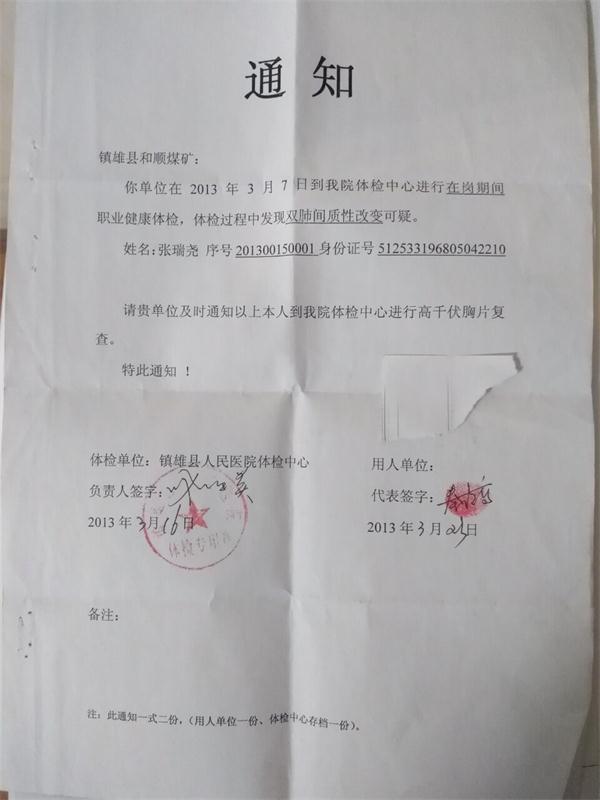 通知
镇雄县和顺煤矿：
你单位在 2013 年 3 月 7 日到我院体检中心进行在岗期间
职业健康体检，体检过程中发现双肺间质性改变可疑。
姓名：张瑞尧 序号 201300150001 身份证号 512533196805042210
请贵单位及时通知以上本人到我院体检中心进行高千伏胸片复
查。
特此通知！
体检单位：镇雄县人民医院体检中心
用人单位：
负责人签字：
代表签字：
2013 年 3 月 16 日
2013 年 3 月 23 日
体检专用章
备注：
注：此通知一式二份，（用人单位一份、体检中心存档一份）。